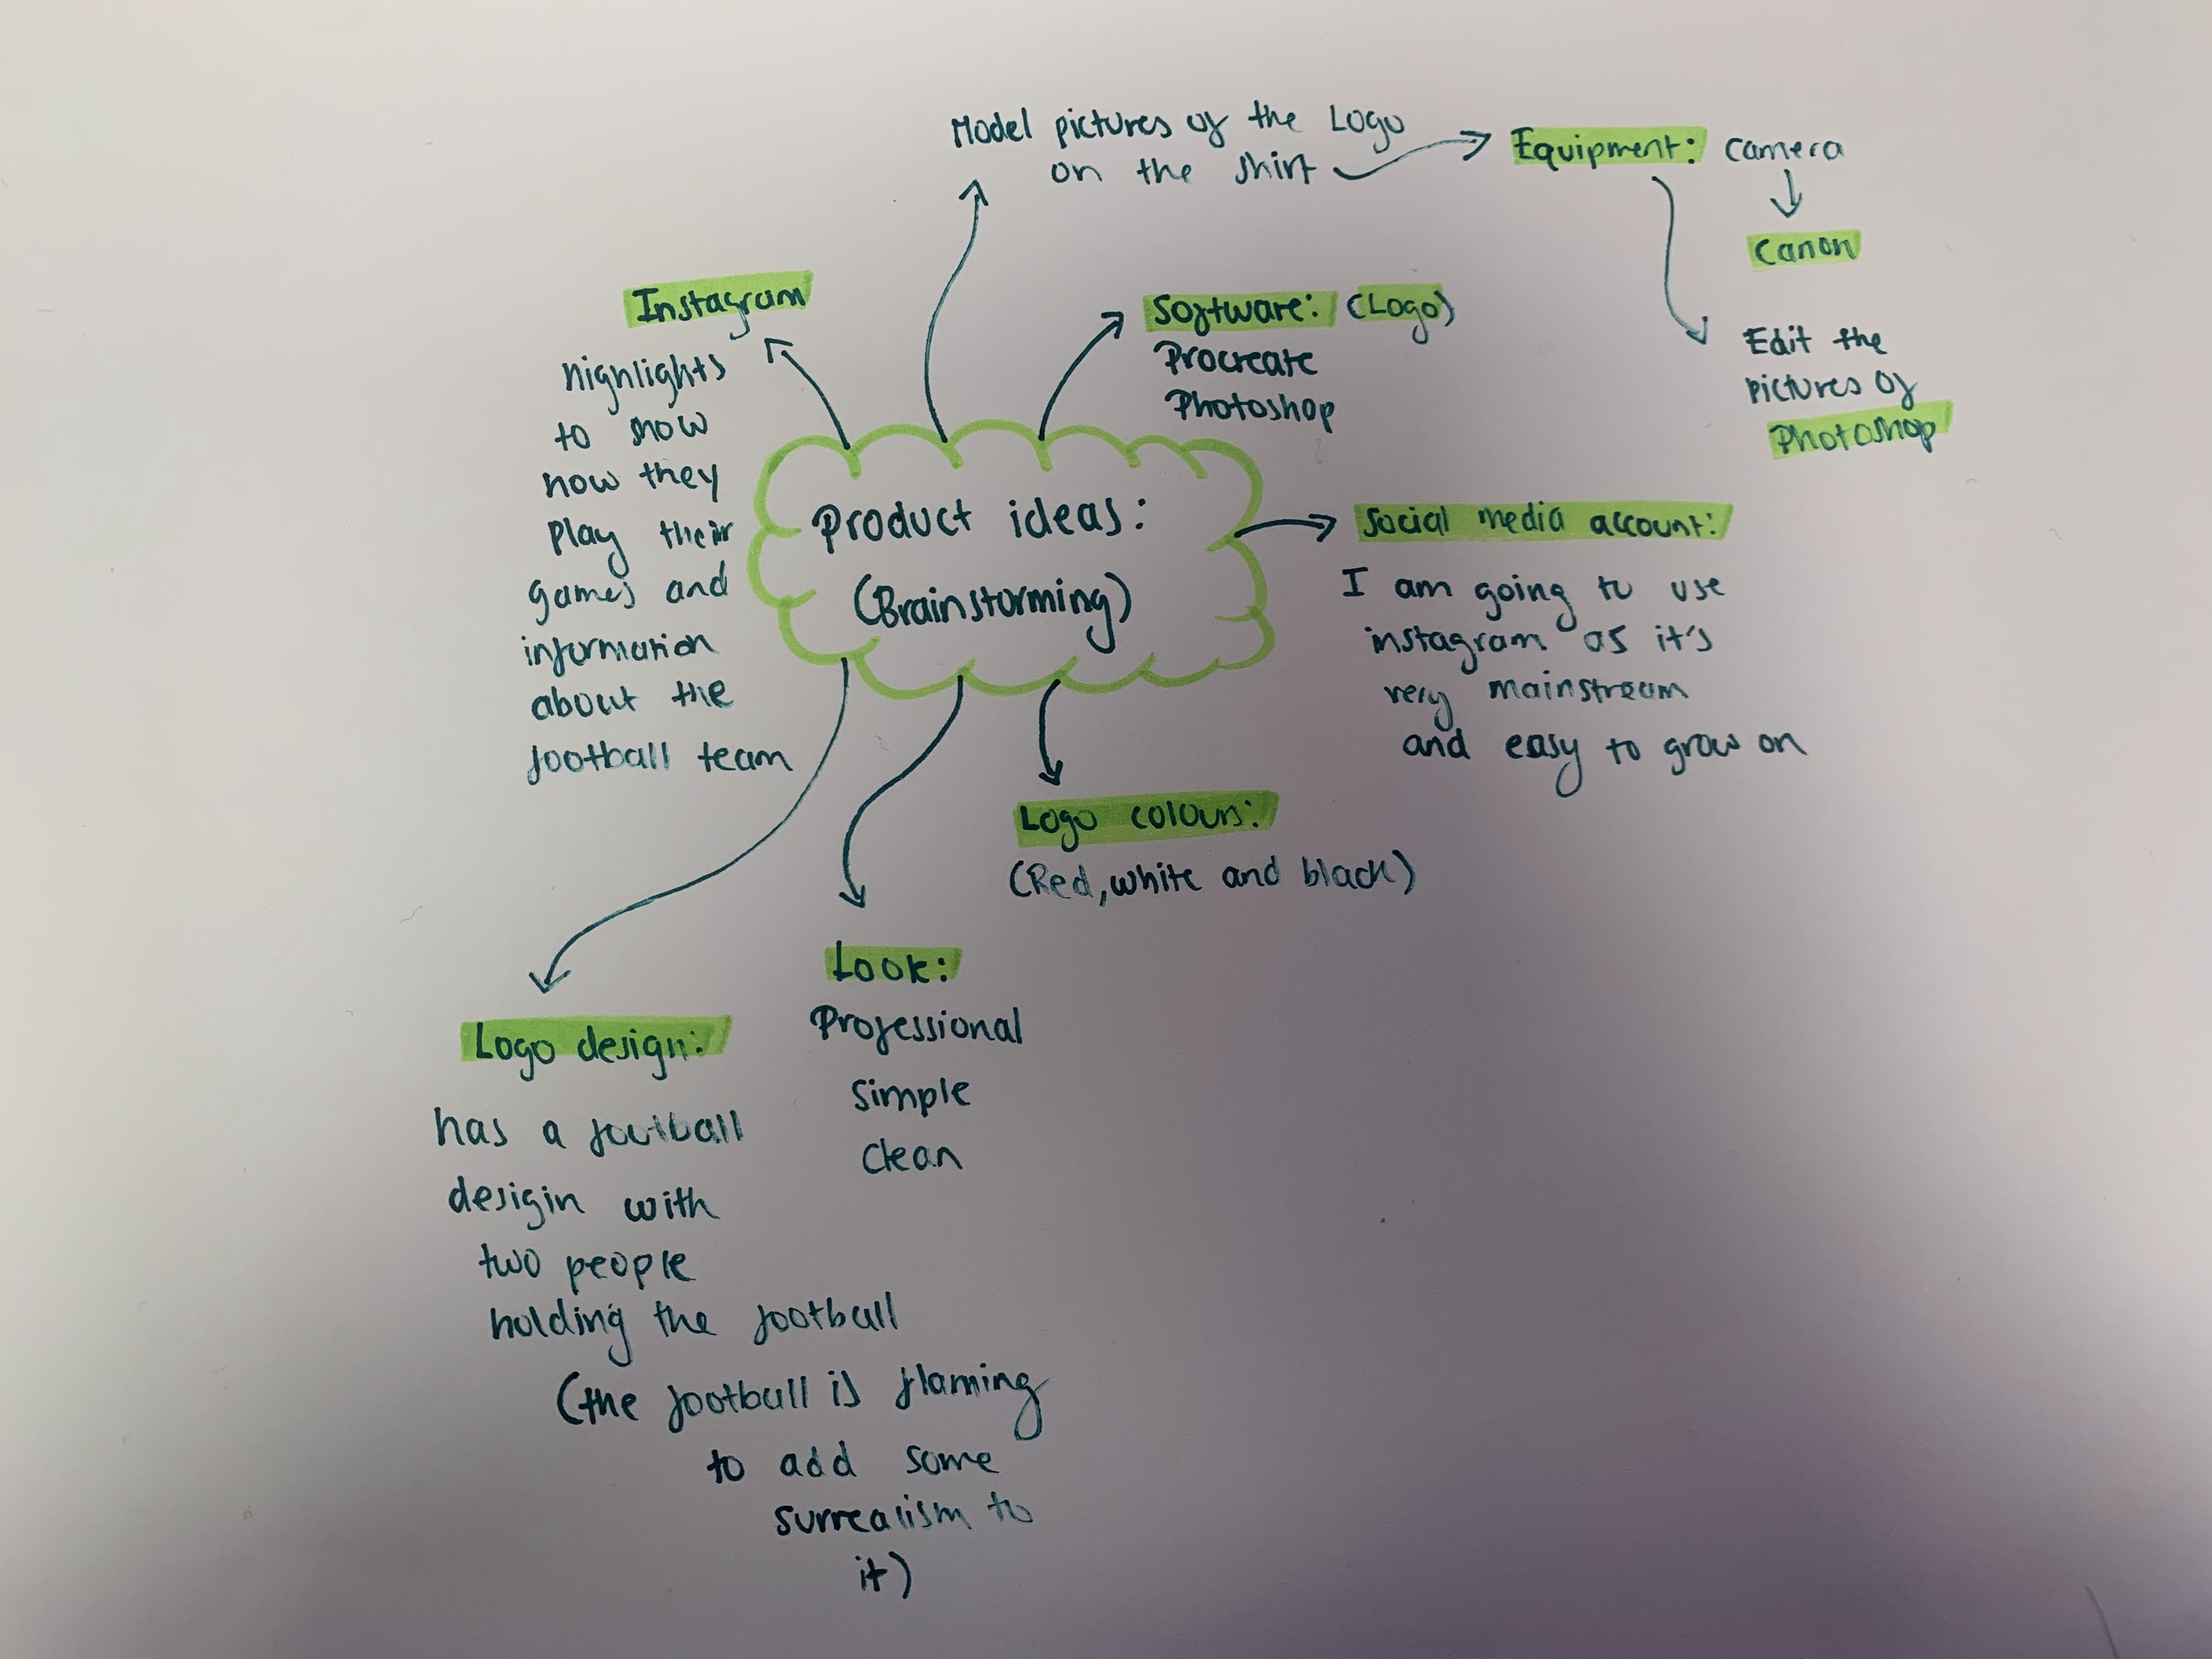 Model pictures of the Logo
on the shirt
Equipment: camera
Canon
Edit the
pictures of
Photoshop
Instagram
highlights
to show
how they
play their
games and
information
about the
football team
Software: (Logo)
Procreate
Photoshop
Product ideas:
(Brainstorming)
Social media account:
I am going to use
instagram as it's
very mainstream
and easy to grow on
Logo colours:
(Red, white and black)
Look:
Professional
Simple
Clean
Logo design:
has a football
desigin with
two people
holding the football
(the football is flaming
to add some
surrealism to
it)